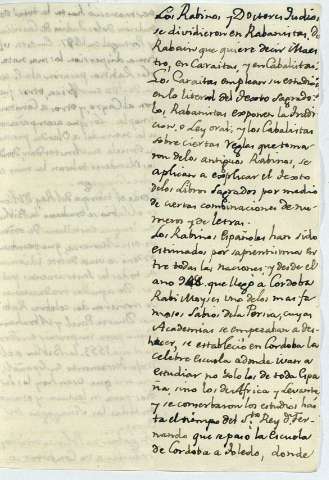 Los Rabinos y Doctores Judios
se dividieron en Rabanistas, de
Rabain que quiere decir Maes
tro, en Caraitas, y en Cabalistas.
Los Caraitas emplean su estudio
en lo literal del texto Sagrado.
los Rabanistas exponen la tradi
cion, o Ley oral; y los Cabalistas
sobre ciertas reglas que toma
ron de los antiguos Rabinos, se
aplican a explicar el texto
de los Libros Sagrados por medio
de ciertas combinaciones de nu
meros y de letras.
Los Rabinos Españoles han sido
estimados por sapientisimos en
tre todas las naciones, y desde el
año 948. que llegó a Cordoba
Rabi Moyses uno de los mas fa
mosos Sabios de la Persia, cuyas
Academias se empezaban a des
hacer, se estableció en Cordoba la
celebre escuela adonde
estudiar no solo los de toda Espa
ña sino los de Africa y Levante,
y se conserbaron los estudios has
ta el tiempo del Sto. Rey Dn. Fer
nando que se pasó la escuela
de Cordoba a Toledo, donde